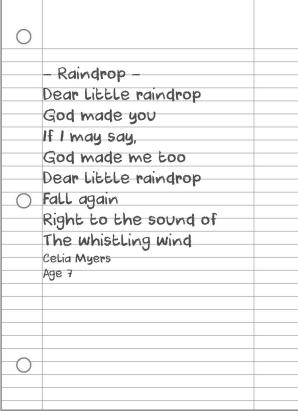 - Raindrop -
Dear little raindrop
God made you
If I may say,
God made me too
Dear little raindrop
Fall again
Right to the sound of
The whistling wind
Celia Myers
Age 7